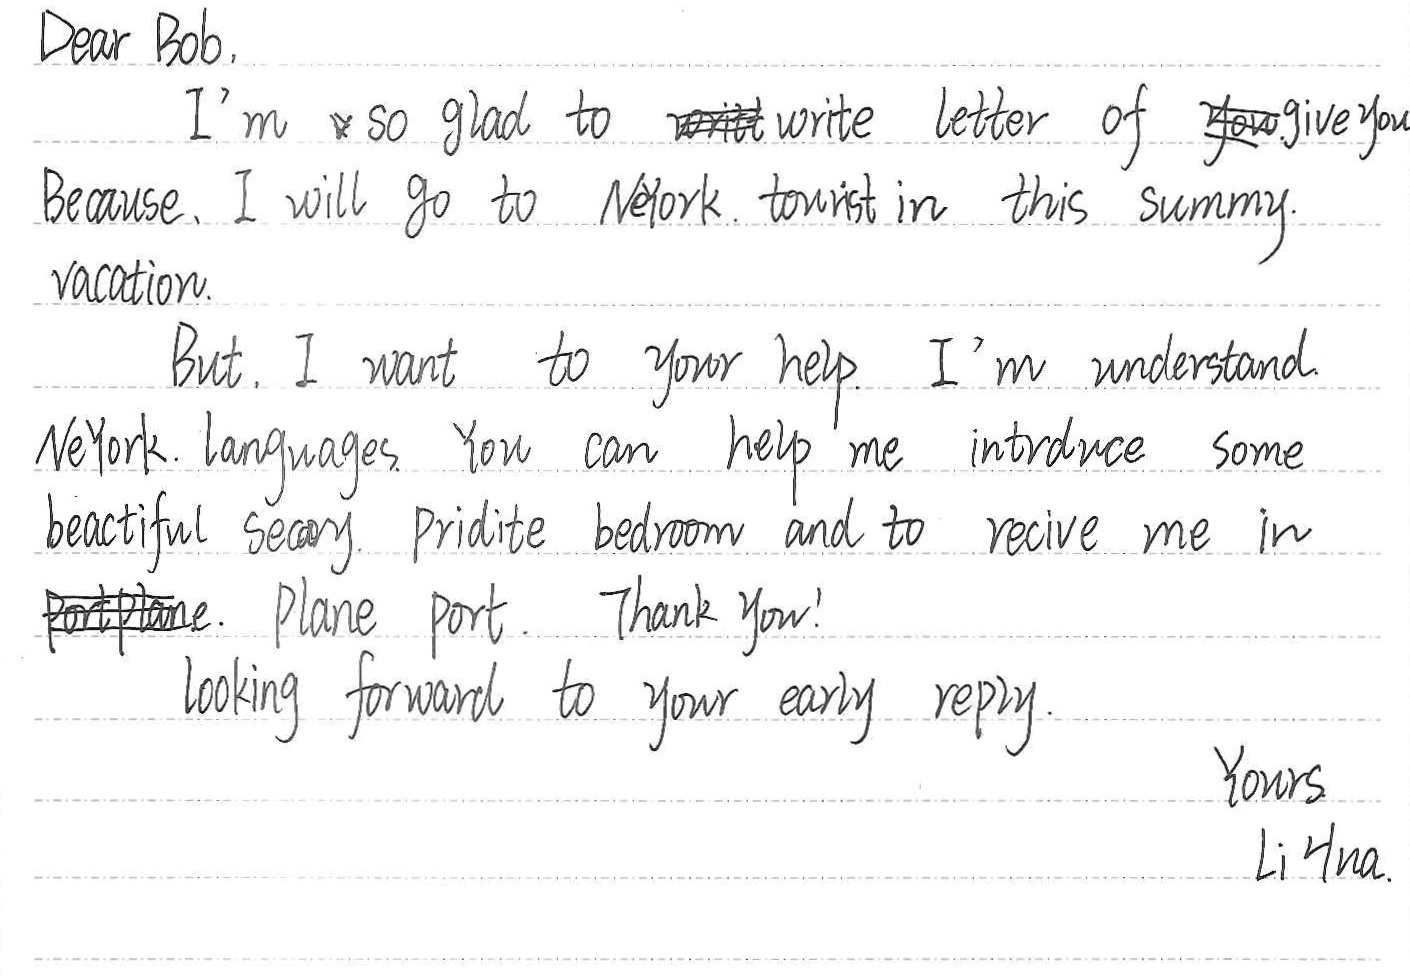 Dear Bob,
I'm so glad to write letter of give you
Because, I will go to NeYork. tourist in this summy.
vacation.
But, I want to your help. I'm understand.
NeYork. languages. You can help me intrduce some
beactiful secary. Pridite bedroom and to recive me in
Plane port. Thank you!
looking forward to your early reply.
Yours
Li Hua.